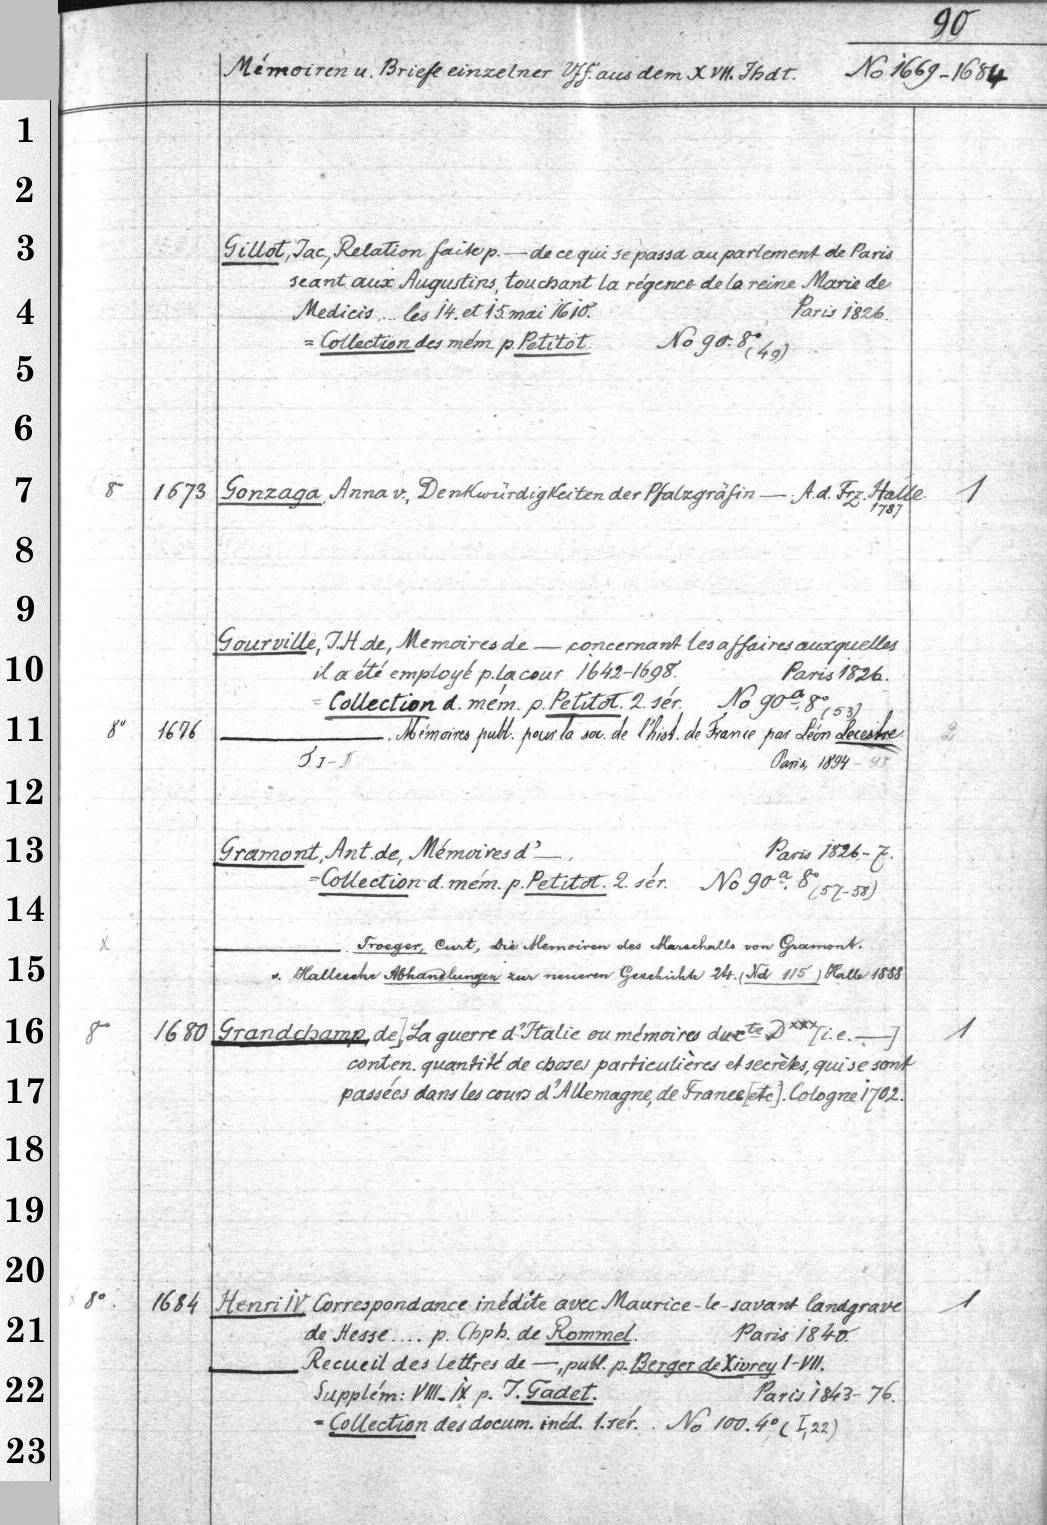 90
Mémoiren u. Briefe einzelner Vff. aus dem XVII. Jhdt. No 1669-1684
1
2
3
4
5
6
7
8
9
10
11
12
13
14
15
16
17
18
19
20
21
22
23
Gillot, Jac., Relation faite p. — de ce qui se passa au parlement de Paris
seant aux Augustins, touchant la régence de la reine Marie de
Medicis ... les 14. et 15. mai 1610. Paris 1826.
= Collection des mém. p. Petitot. No 90. 8° (49)
8° 1673 Gonzaga, Anna v., Denkwürdigkeiten der Pfalzgräfin —. A. d. Frz. Halle 1
1787
Gourville, J. H. de, Memoires de — concernant les affaires auxquelles
il a été employé p. la cour 1642-1698. Paris 1826.
= Collection d. mém. p. Petitot. 2. sér. No 90a. 8° (53)
8° 1676 ———. Mémoires publ. pour la soc. de l'hist. de France par Léon Lecestre 2
T I-II Paris, 1894-95
Gramont, Ant. de, Mémoires d'—. Paris 1826-7.
= Collection d. mém. p. Petitot. 2. sér. No 90a. 8° (57-58)
x ———. Troeger, Curt, Die Memoiren des Marschalls von Gramont.
s. Hallesche Abhandlungen zur neueren Geschichte 24. (Nd 115) Halle 1888
8° 1680 Grandchamp, de] La guerre d'Italie ou mémoires du cte D xxx [i. e. —] 1
conten. quantité de choses particulières et secrètes, qui se sont
passées dans les cours d'Allemagne, de France [etc]. Cologne 1702.
x 8°. 1684 Henri IV Correspondance inédite avec Maurice-le-savant landgrave 1
de Hesse .... p. Chph. de Rommel. Paris 1840
——— Recueil des lettres de —, publ. p. Berger de Xivrey I-VII.
Supplém: VIII-IX p. J. Gadet. Paris 1843-76.
= Collection des docum. inéd. 1. sér. No 100. 4° (I,22)